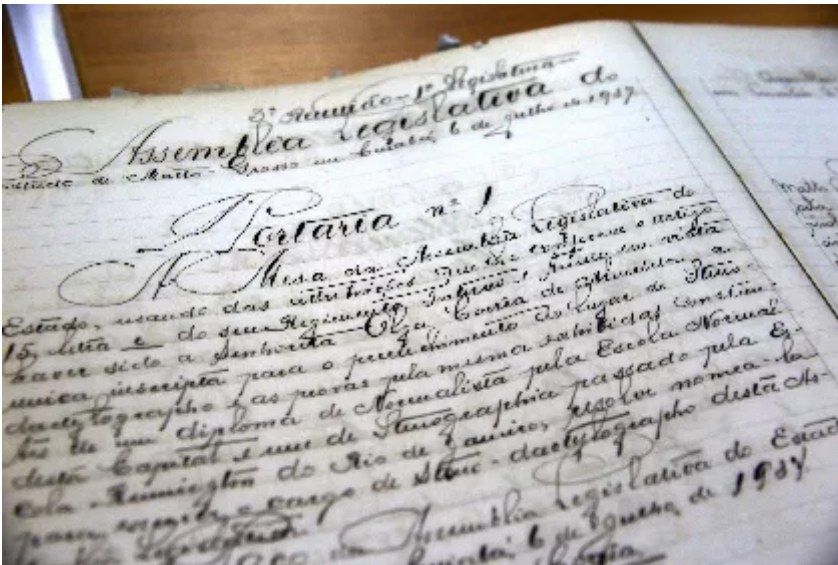 3ª Reunião - 1ª Legislatura -
Assemblea Legislativa do
Estado de Matto-Grosso em Cuiabá, 6 de julho de 1937.
Portaria nº 1
A Mesa da Assemblea Legislativa do
Estado, usando das attribuições que lhe confere o artigo
15, letra e do seu Regimento Interno e, tendo em vista
haver sido a Senhorita Olga Corrêa de Almeida a
unica inscripta para o preenchimento do lugar de Steno-
dactylographo e as provas pela mesma exhibidas constan-
tes de um diploma de Normalista pela Escola Normal
desta Capital e um de Stenographia passado pela Es-
cola Remington do Rio de Janeiro, resolve nomea-la
para exercer o cargo de Steno-dactylographo desta As-
Legislativa
da Assemblea Legislativa do Estad
Cuiabá, 6 de julho de 1937.
Matto